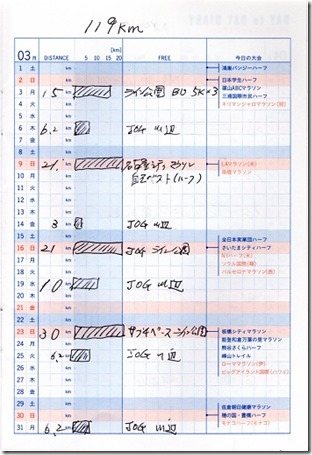 119km
03月 DISTANCE [km] 5 10 15 20 FREE 今日の大会
1 土 km 鴻巣パンジーハーフ
2 日 km 日本学生ハーフ
3 月 15 km 公園 5K×3 篠山ABCマラソン
三浦国際市民ハーフ
キリマンジャロマラソン
4 火 km
5 水 km
6 木 6.2 km JOG 辺
7 金 km
8 土 km
9 日 21. km LAマラソン(米)
10 月 km 自己ベスト(ハーフ)
11 火 km
12 水 km
13 木 km
14 金 3 km JOG 辺
15 土 km
16 日 21 km JOG 公園 全日本実業団ハーフ
さいたまシティハーフ
NYハーフ(米)
ソウル国際(韓)
バルセロナマラソン(西)
17 月 km
18 火 km
19 水 10 km JOG 辺
20 木 km
21 金 km
22 土 km
23 日 30 km ペース 公園 板橋シティマラソン
24 月 km 能登和倉万葉の里マラソン
熊谷さくらハーフ
25 火 6.2 km JOG 辺 峰山トレイル
ローママラソン(伊)
26 水 km ビッグアイランド国際(ハワイ)
27 木 km
28 金 km
29 土 km 佐倉朝日健康マラソン
30 日 km 穂の国・豊橋ハーフ
モナコハーフ(モナコ)
31 月 6.2 km JOG 辺